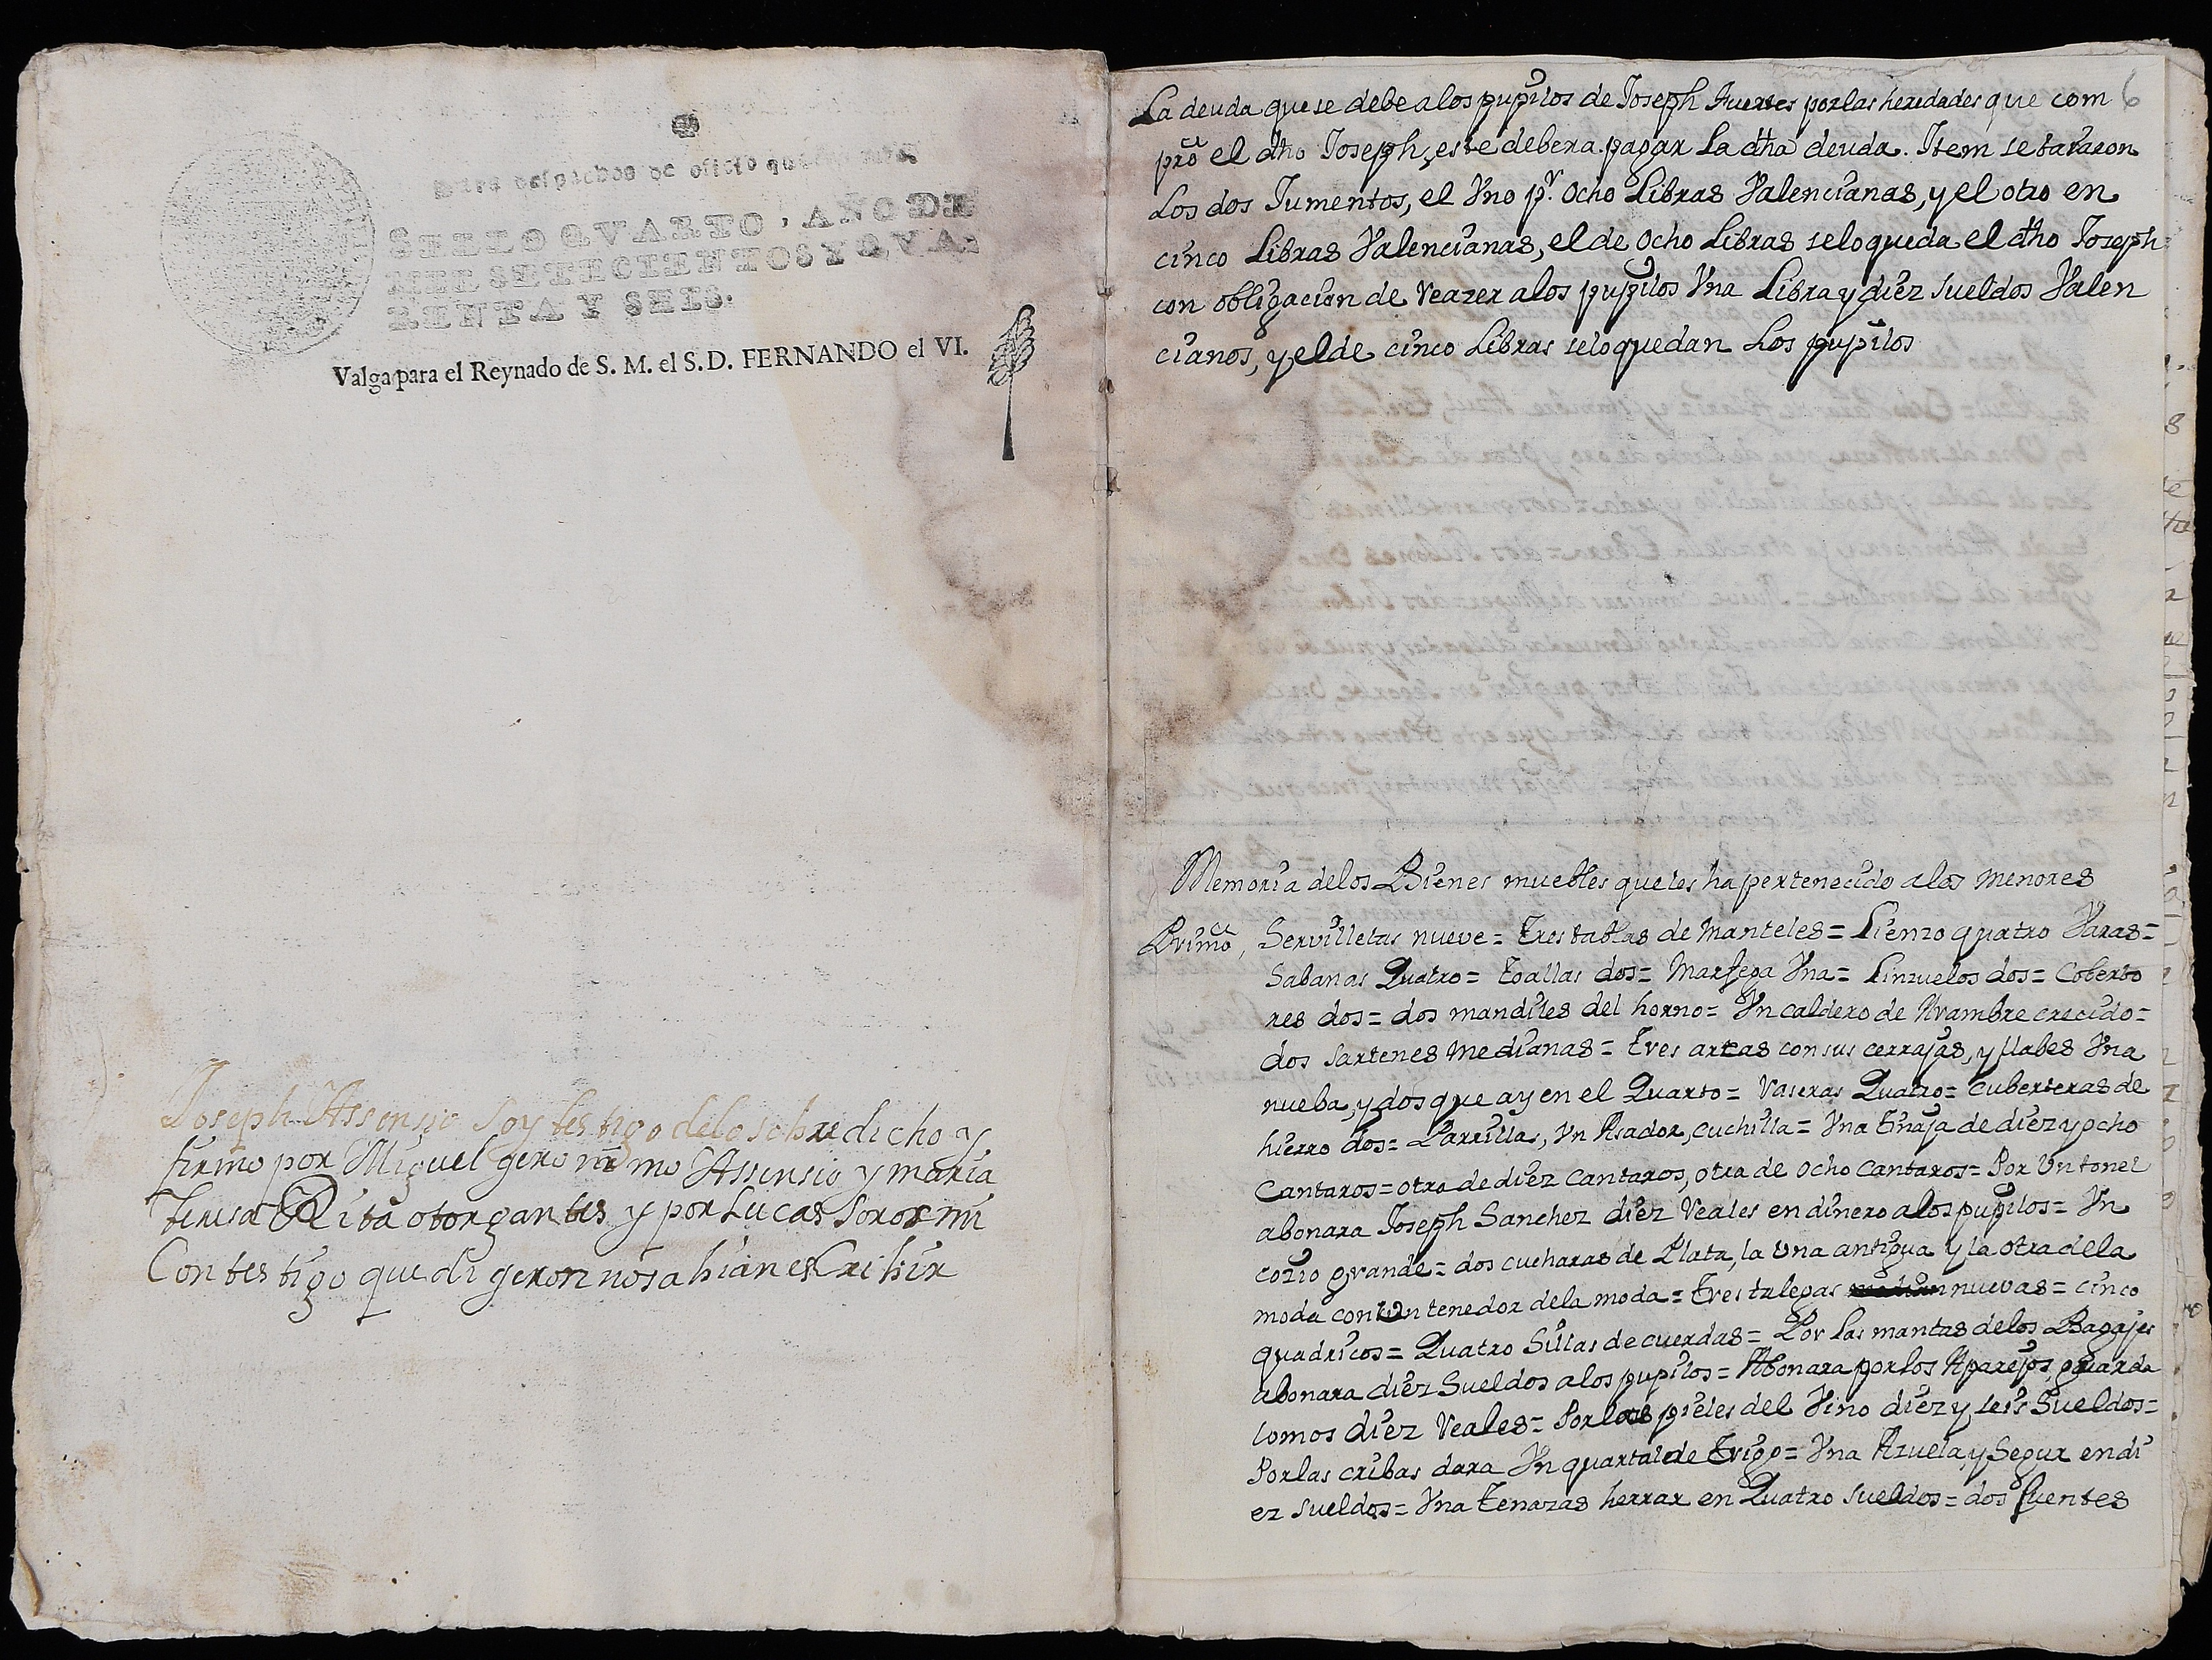 Para despachos de oficio quatro mrs.
SELLO QVARTO, AÑO DE
MIL SETECIENTOS Y QVA-
RENTA Y SEIS.
Valga para el Reynado de S. M. el S. D. FERNANDO el VI.
Joseph Assensio soy testigo delo sobre dicho y
firmo por Miguel geronimo Assensio y maria
teresa Rita otorgantes y por Lucas Soror mi
Con testigo que di geron no sabian esCribir
6
La deuda que se debe alos pupilos de Joseph fuertes por las heredades que com
pro el dho Joseph, este debera pagar La dha deuda. Item se tararon
Los dos Jumentos, el Vno pr. Ocho Libras Valencianas, y el otro en
cinco Libras Valencianas, el de ocho Libras se lo queda el dho Joseph
con obligacion de reazer alos pupilos Vna Libra y diez sueldos Valen
cianos, y el de cinco Libras se lo quedan Los pupilos
Memoria delos Bienes muebles que les ha pertenecido a los menores
Primo, Servilletas nueve = Tres tablas de Manteles = Lienzo quatro Varas =
Sabanas Quatro = Toallas dos = Marfega Vna = Linzuelos dos = Coberto
res dos = dos mandiles del horno = Vn caldero de Arambre crecido =
dos sartenes Medianas = Tres arcas con sus cerrajas, y llabes Vna
nueba, y dos que ay en el Quarto = Vaseras Quatro = cuberteras de
hierro dos = Parrillas, Vn Asador, cuchilla = Vna Tinaja de diez y ocho
Cantaros = otra de diez Cantaros, otra de ocho Cantaros = Por Vn tonel
abonara Joseph Sanchez diez reales en dinero alos pupilos = Vn
cozio grande = dos cucharas de Plata, la Vna antigua y la otra dela
moda con Vn tenedor dela moda = Tres talegas nuevas = cinco
quadricos = Quatro Sillas de cuerdas = Por las mantas delos Bagajes
abonara diez Sueldos alos pupilos = Abonara por los Aparejos, guarda
lomos diez reales = Por las pieles del Vino diez y seis Sueldos =
Por las cribas dara Vn quartal de Trigo = Vna Azuela y Segur en di
ez sueldos = Vna Tenazas herrar en Quatro sueldos = dos fuentes